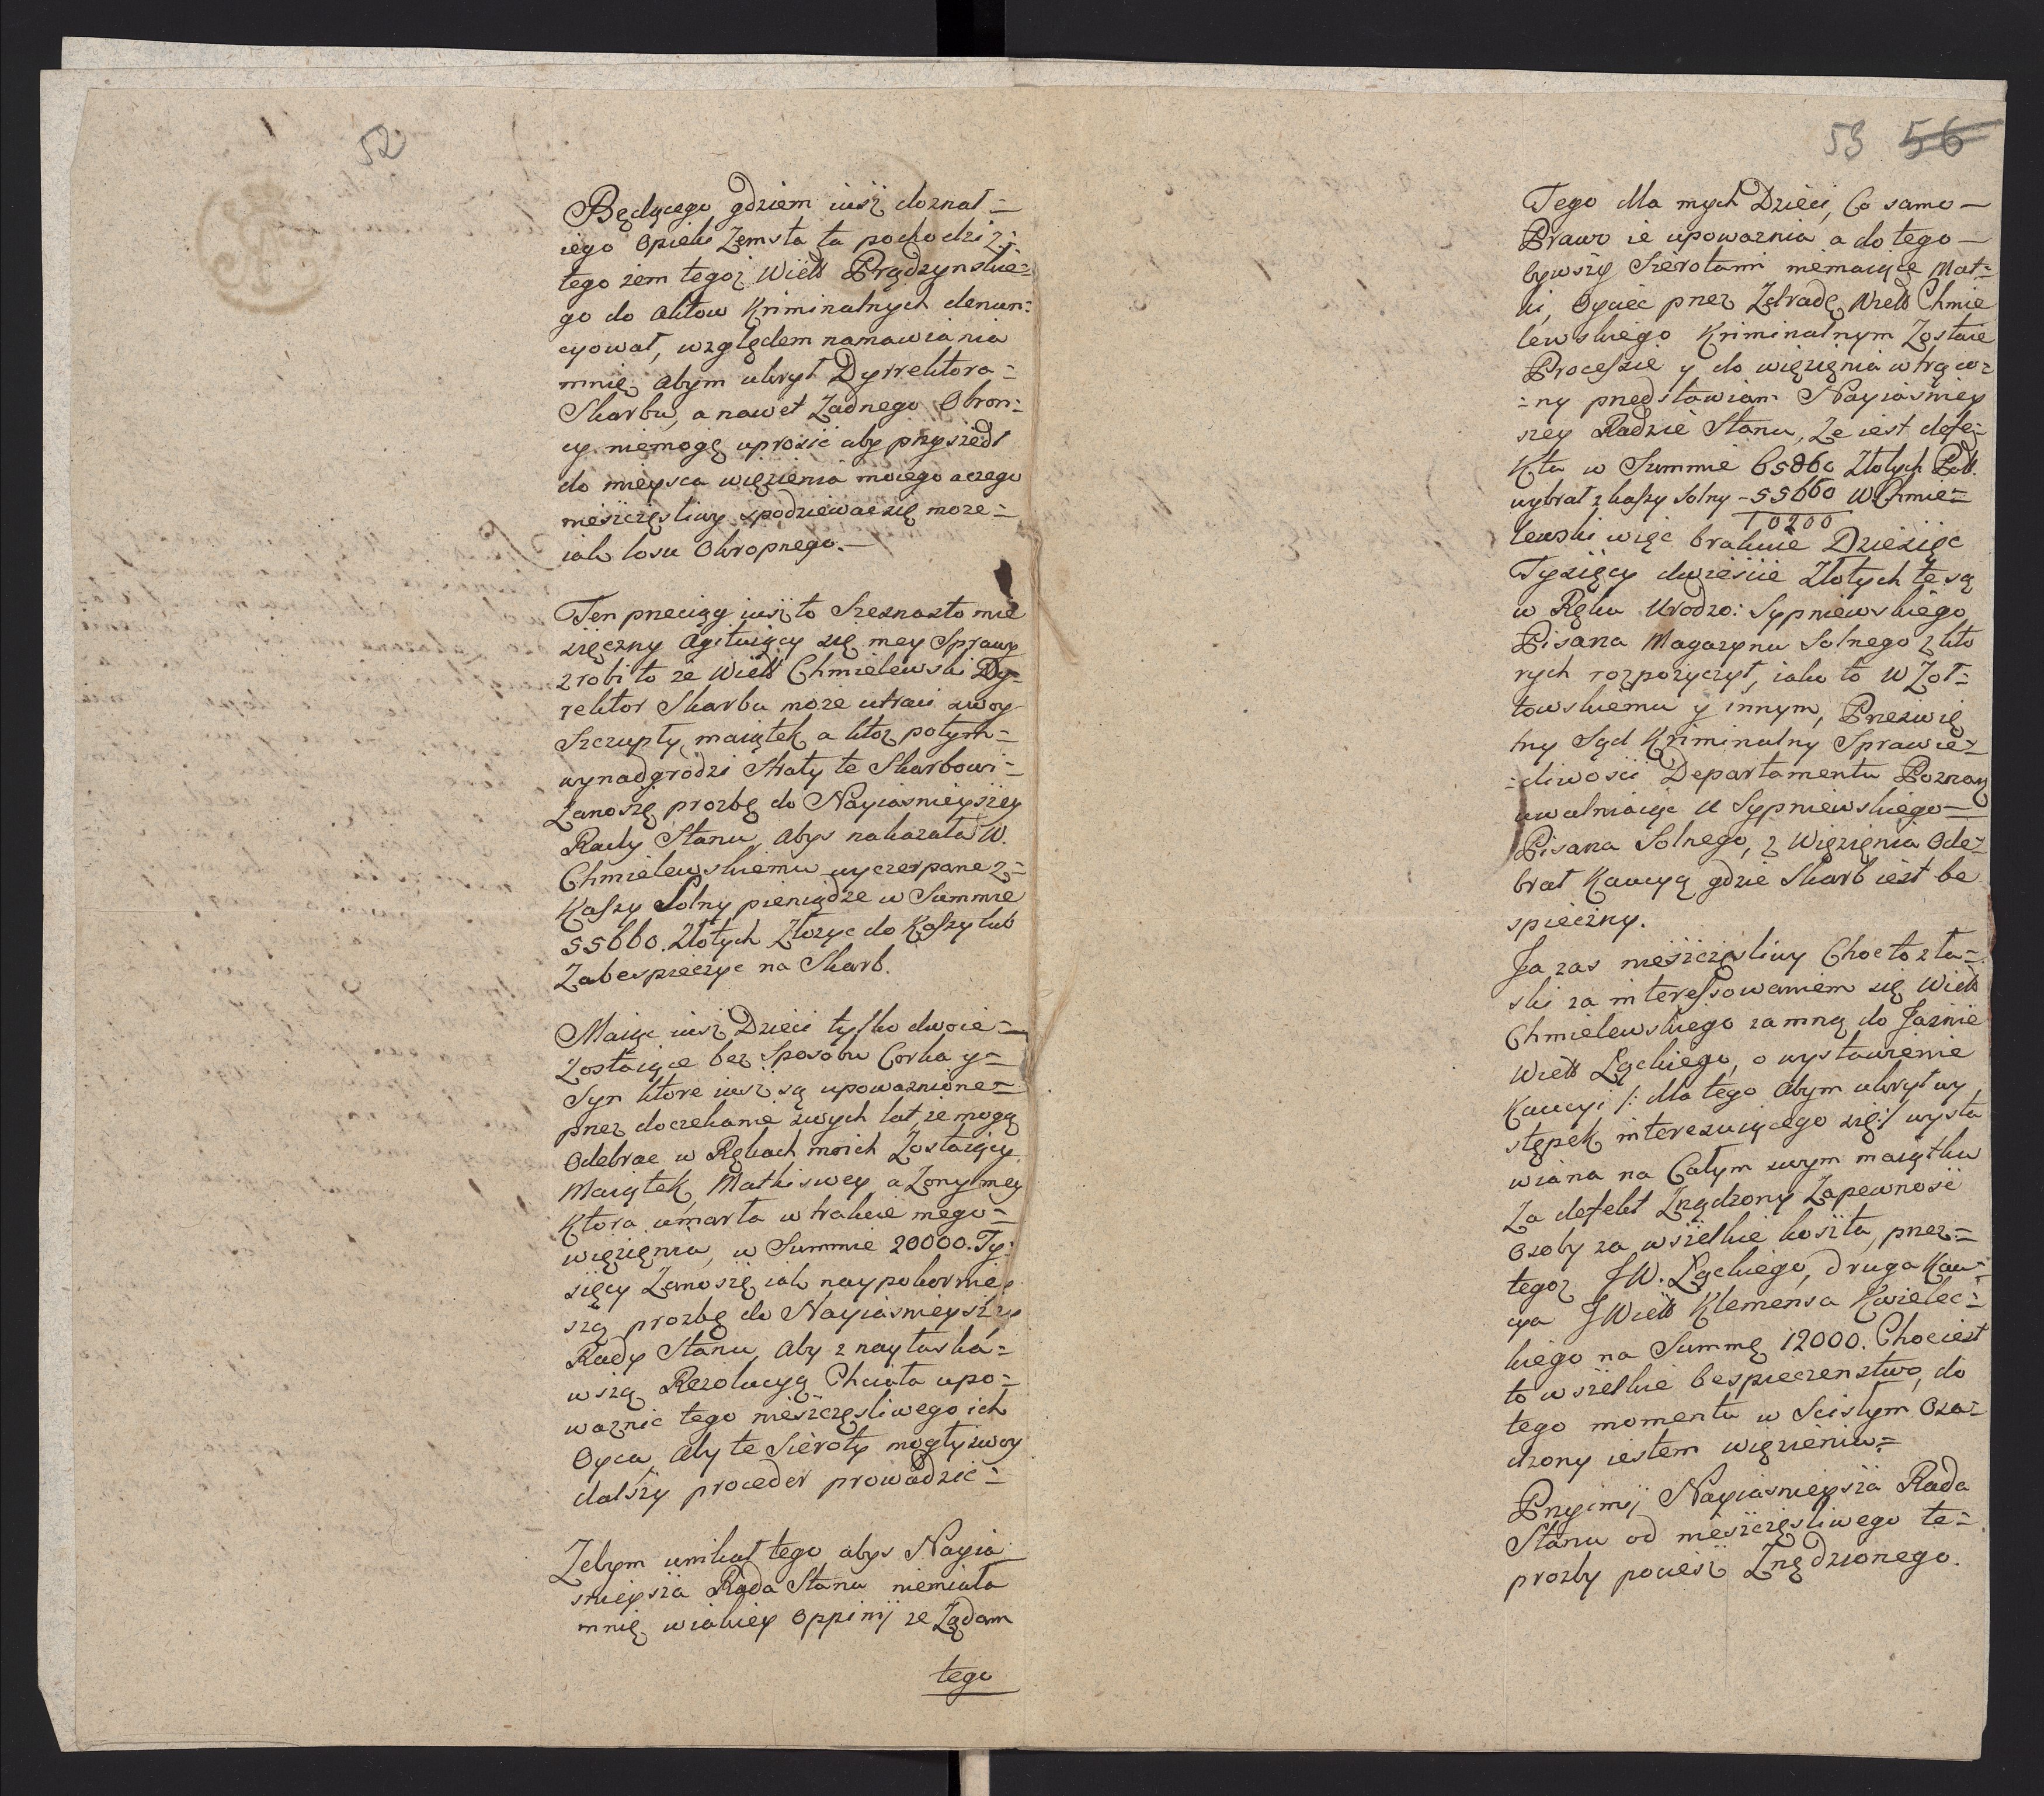 52
Będącego gdziem iusz doznał=
iego Opieki Zemsta ta pochodzi z=
tego żem tegoż Wiell Prądzynskie=
go do Aktow Kriminalnych denun:
cyował, względem namawiania
mnię abym ukrył Dyrrektora=
Skarbu, a nawet Zadnego Obron:
cy niemogę uprosic aby przyszedł
do mieysca więzienia moiego aczego
niesżczęsliwy spodziewac się może=
iak losu Okropnego.—
Ten przeciąg iusz to Szesnasto mie
sięczny agituiący się mey Sprawy
zrobi to że Wiell Chmielewski Dy=
rektor Skarbu może utraci swoy
Szczupły maiątek a ktoż potym=
wynadgrodzi Straty te Skarbowi=
Zanoszę prozbę do Nayiasnieyszey
Rady Stanu, Abys nakazała W.
Chmielewskiemu wyczerpane z=
Kassy Solny pieniądze w Summie
55660. Złotych Złożyc do Kassy lub
Zabespieczyc na Skarb.
Maiąc iusz Dzieci tylko dwoie=
Zostaiące bez Sposobu Corka y=
Syn ktore iusz są upoważnione=
przez doczekanie swych lat, że mogą
Odebrac w Rękach moich Zostaiący
Maiątek, Matki swey a Zony mey
Ktora umarła w trakcie mego=
więzięnia, w Summie 20000. Ty:
sięcy Zanoszę iak naypokornie
szą prozbę do Nayiasnieyszey
Rady Stanu, Aby z nayłaska=
wszą Rezolucyą Chciała upo=
ważnic tego niesżczęsliwego ich
Oyca, Aby te Sieroty mogły swoy
dalszy proceder prowadzic=
Zebym unikał tego abys Nayia
snieysza Rada Stanu niemiała
mnię wiakiey Oppinij że Ządam
tego
53 56
Tego dla mych Dzieci, Co samo—
Prawo ie upoważnia a do tego—
bywszy Sierotami niemaiące Mat=
ki, Oyciec przez Zdradę Wiell Chmie
lewskiego Kriminalnym Zostaie
Processie y do więzięnia wtrąco=
=ny przedstawiam Nayiasniey
szey Radzie Stanu, Że iest defe=
Kta w Summie 65860 Złotych Poll.
wybrał z kassy Solny - 55660 W. Chmie=
10200
lewski więc brakuie Dziesięc
Tysięcy dwiescie Złotych te są
w Ręku Urodzo: Sypniewskiego
Pisarza Magazynu Solnego z kto
rych rozpożyczył, iako to W Zoł=
towskiemu y innym, Przeswię
tny Sąd Kriminalny Sprawie=
=dliwosci Departamentu Poznan
uwalniaiąc U Sypniewskiego—
Pisarza Solnego, z Więzięnia Ode=
brał Kaucyą gdzie Skarb iest be
spieczny.
Ja zas niesżczęsliwy Choc to z ła=
ski za interessowaniem się Wiell
Chmielewskiego zamną do Jaśnie
Wiell Łąckiego, o wystawienie
Kaucyi /: dla tego Abym ukrył wy
stępek interesuiącego się :/ wysta
wiana na Całym swym maiątku
Za defekt Zrządzony Zapewnosc
Osoby za wszelkie koszta, przez=
tegoż JW. Łąckiego, druga Kau=
cya JWiell Klemensa Kwielec=
kiego na Summę 12000. Choc iest
to wszelkie bespieczenstwo, do
tego momentu w Scisłym Osa=
dzony iestem więzieniu=
Przyimij Nayiasnieysza Rada
Stanu od niesżczęsliwego te=
prozby pociesz Znędzionego.